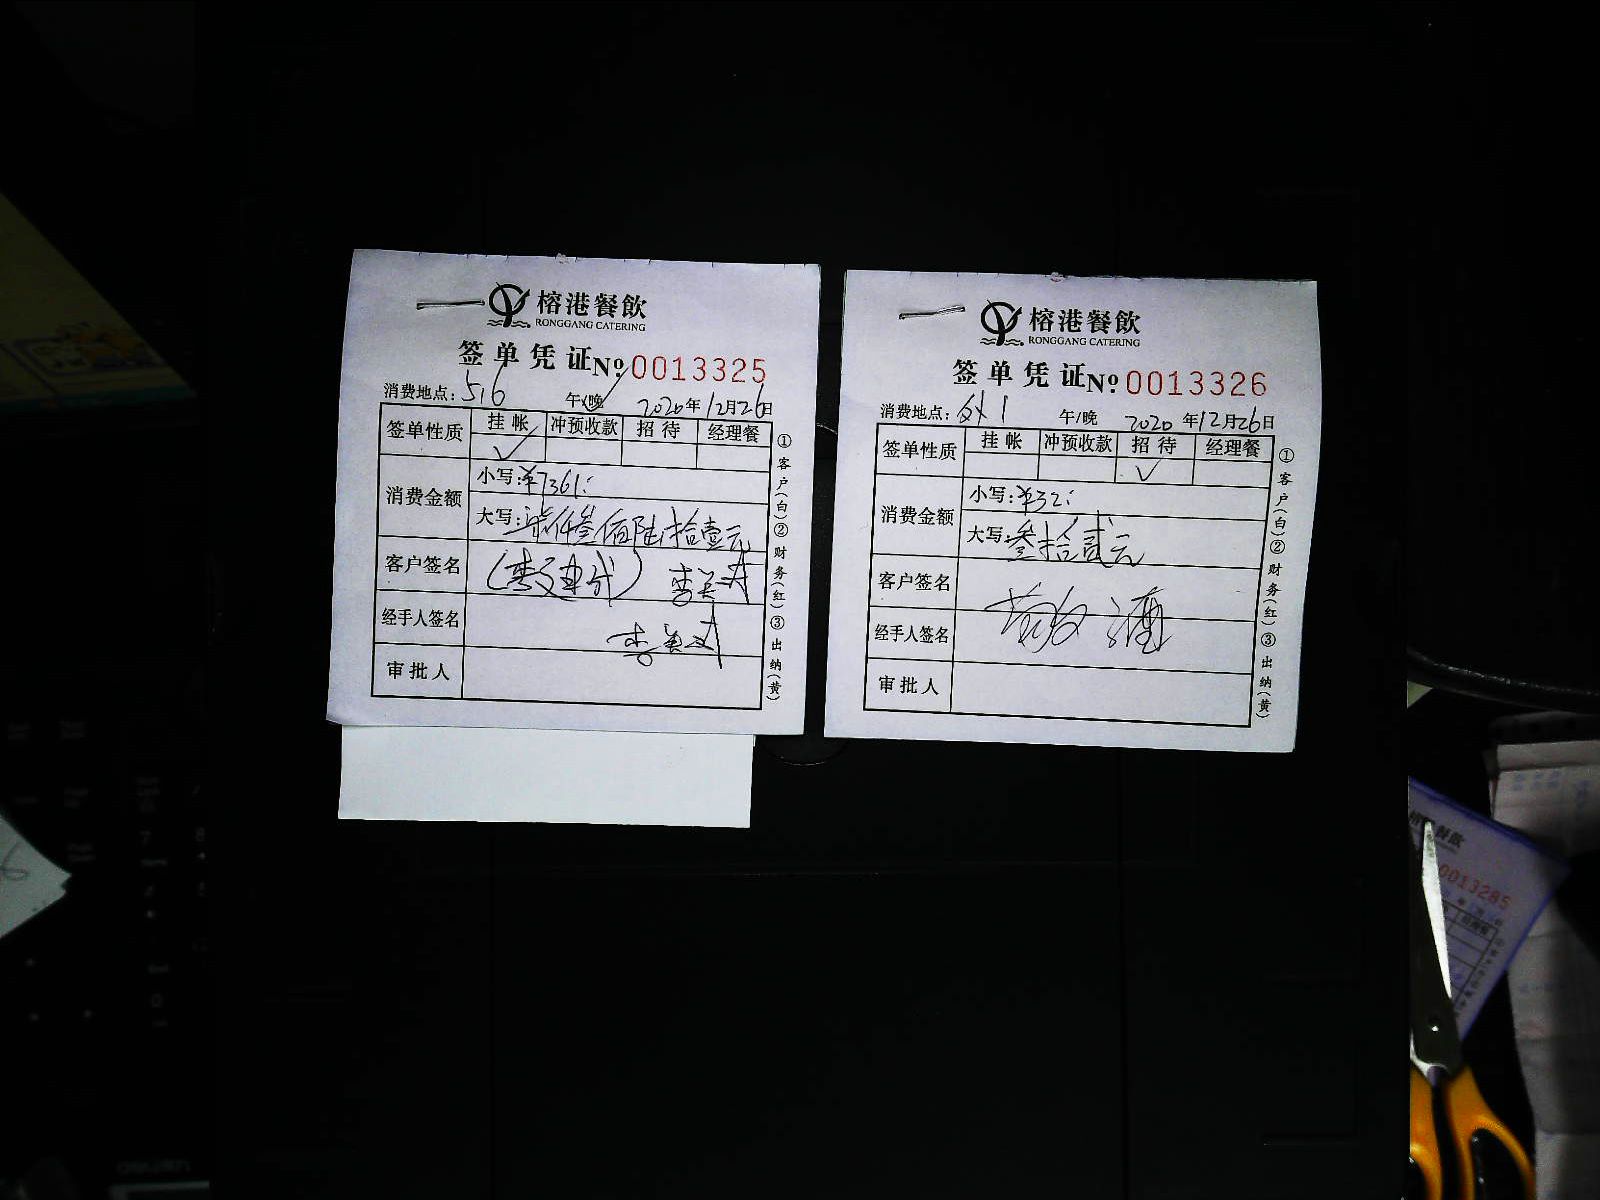 榕港餐飲
RONGGANG CATERING
签单凭证№ 0013325
消费地点：516 午/晚 2020年12月26日
签单性质 挂帐 冲预收款 招待 经理餐
✓
消费金额
小写：¥7361：
大写：柒仟叁佰陆拾壹元
客户签名
经手人签名
审批人
①客户（白）②财务（红）③出纳（黄）
榕港餐飲
RONGGANG CATERING
签单凭证№ 0013326
消费地点：外1 午/晚 2020年12月26日
签单性质 挂帐 冲预收款 招待 经理餐
✓
消费金额
小写：¥32：
大写：叁拾贰元
客户签名
经手人签名
审批人
①客户（白）②财务（红）③出纳（黄）
餐飲
0013285